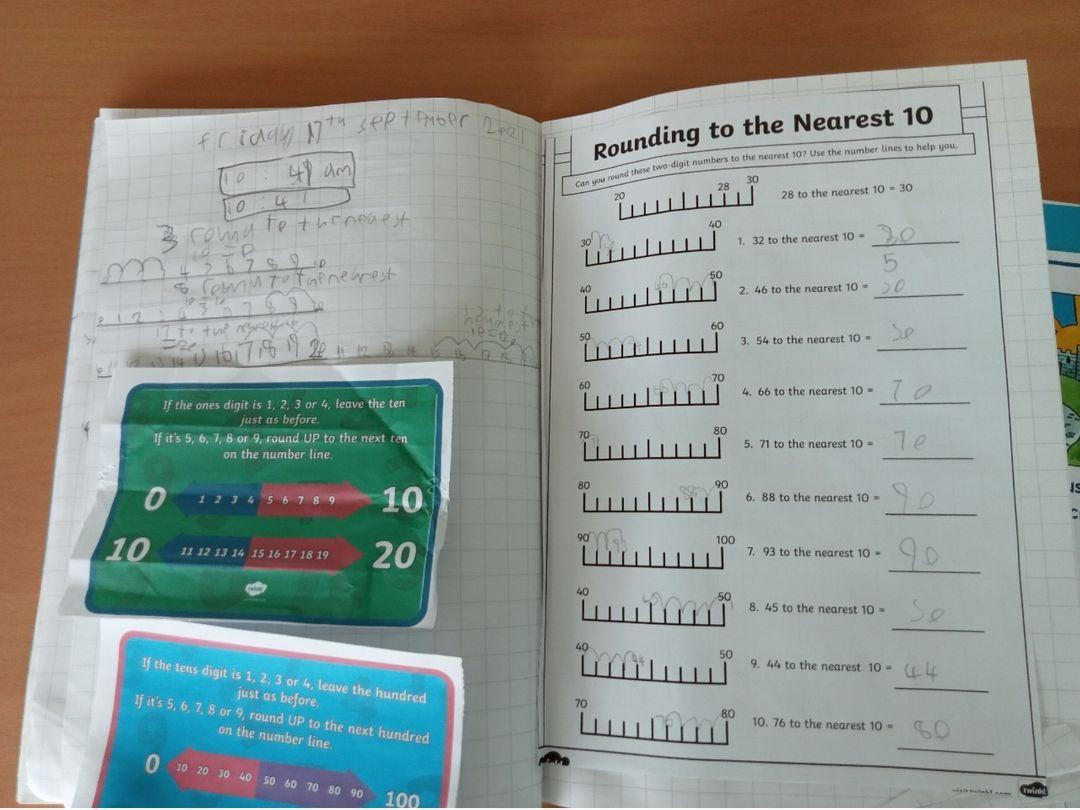 friday 17th september 2021
10 : 41 am
10 : 41
3 round to the nearest
10 = 0
4 5 6 7 8 9 10
8 round to the nearest
10 = 10
17 to the nearest
= 20
If the ones digit is 1, 2, 3 or 4, leave the ten
just as before.
If it's 5, 6, 7, 8 or 9, round UP to the next ten
on the number line.
0 1 2 3 4 5 6 7 8 9 10
10 11 12 13 14 15 16 17 18 19 20
twinkl
If the tens digit is 1, 2, 3 or 4, leave the hundred
just as before.
If it's 5, 6, 7, 8 or 9, round UP to the next hundred
on the number line.
0 10 20 30 40 50 60 70 80 90 100
Rounding to the Nearest 10
Can you round these two-digit numbers to the nearest 10? Use the number lines to help you.
20 28 30 28 to the nearest 10 = 30
30 40 1. 32 to the nearest 10 = 30
5
40 50 2. 46 to the nearest 10 =
50 60 3. 54 to the nearest 10 = 50
60 70 4. 66 to the nearest 10 = 70
70 80 5. 71 to the nearest 10 = 70
80 90 6. 88 to the nearest 10 = 90
90 100 7. 93 to the nearest 10 = 90
40 50 8. 45 to the nearest 10 = 50
40 44 50 9. 44 to the nearest 10 = 44
70 80 10. 76 to the nearest 10 = 80
visit twinkl.com twinkl